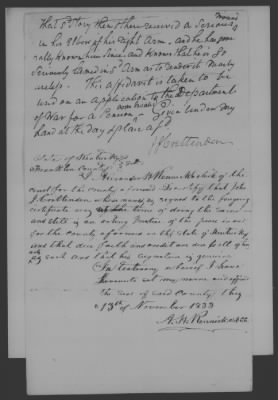 that sd Story then & there received a serious wound
in his Elbow of his right Arm, and he has generally
known him since and knows that he is so
seriously lamed in sd Arm as to render it nearly
useless. This affidavit is taken to be
used on an application to the Department
of War for a Pension. Given under my
hand at the day & place afsd
J. Crittenden
State of Kentucky
County Sct
I Alexander H Rennick clerk of the
court for the county aforesaid Do certify that John
J. Crittenden whose name is signed to the foregoing
certificate was at the time of doing the same
and still is an acting Justice of the peace in and
for the county aforesaid in the State of Kentucky
and that due faith and credit are due to all of his
acts as such and that his signature is genuine
In testimony whereof I have
hereunto set my name and affixed
the seal of said county this
13th of November 1833
A. H. Rennick